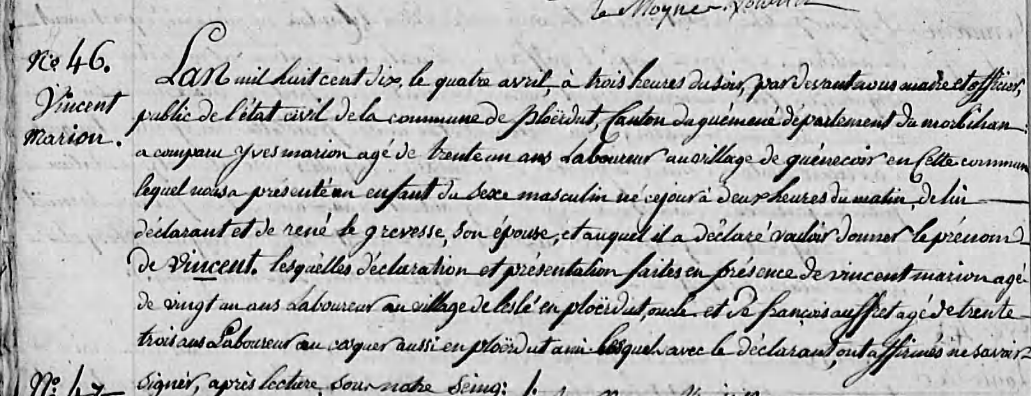 le Moyne
No 46.
Vincent
marion.
L'an mil huit cent dix, le quatre avril, à trois heures du soir, par devant nous maire et officier
public de l'état civil de la commune de ploërdut, Canton du guémené département du morbihan
a comparu Yves marion agé de trente un ans Laboureur au village de quénecoir en Cette commune
lequel nous a présenté un enfant du Sexe masculin né ce jour à deux heures du matin, de lui
déclarant et de rené le grevesse, son épouse, et auquel il a déclaré vouloir donner le prénom
de vincent. lesquelles déclaration et présentation faites en présence de vincent marion agé
de vingt un ans Laboureur au village de leslé en ploërdut, oncle et de françois auffret agé de trente
trois ans Laboureur au cosquer aussi en ploërdut ami lesquels avec le déclarant, ont affirmés ne savoir
signer, après lecture, sous notre seing:
No 47